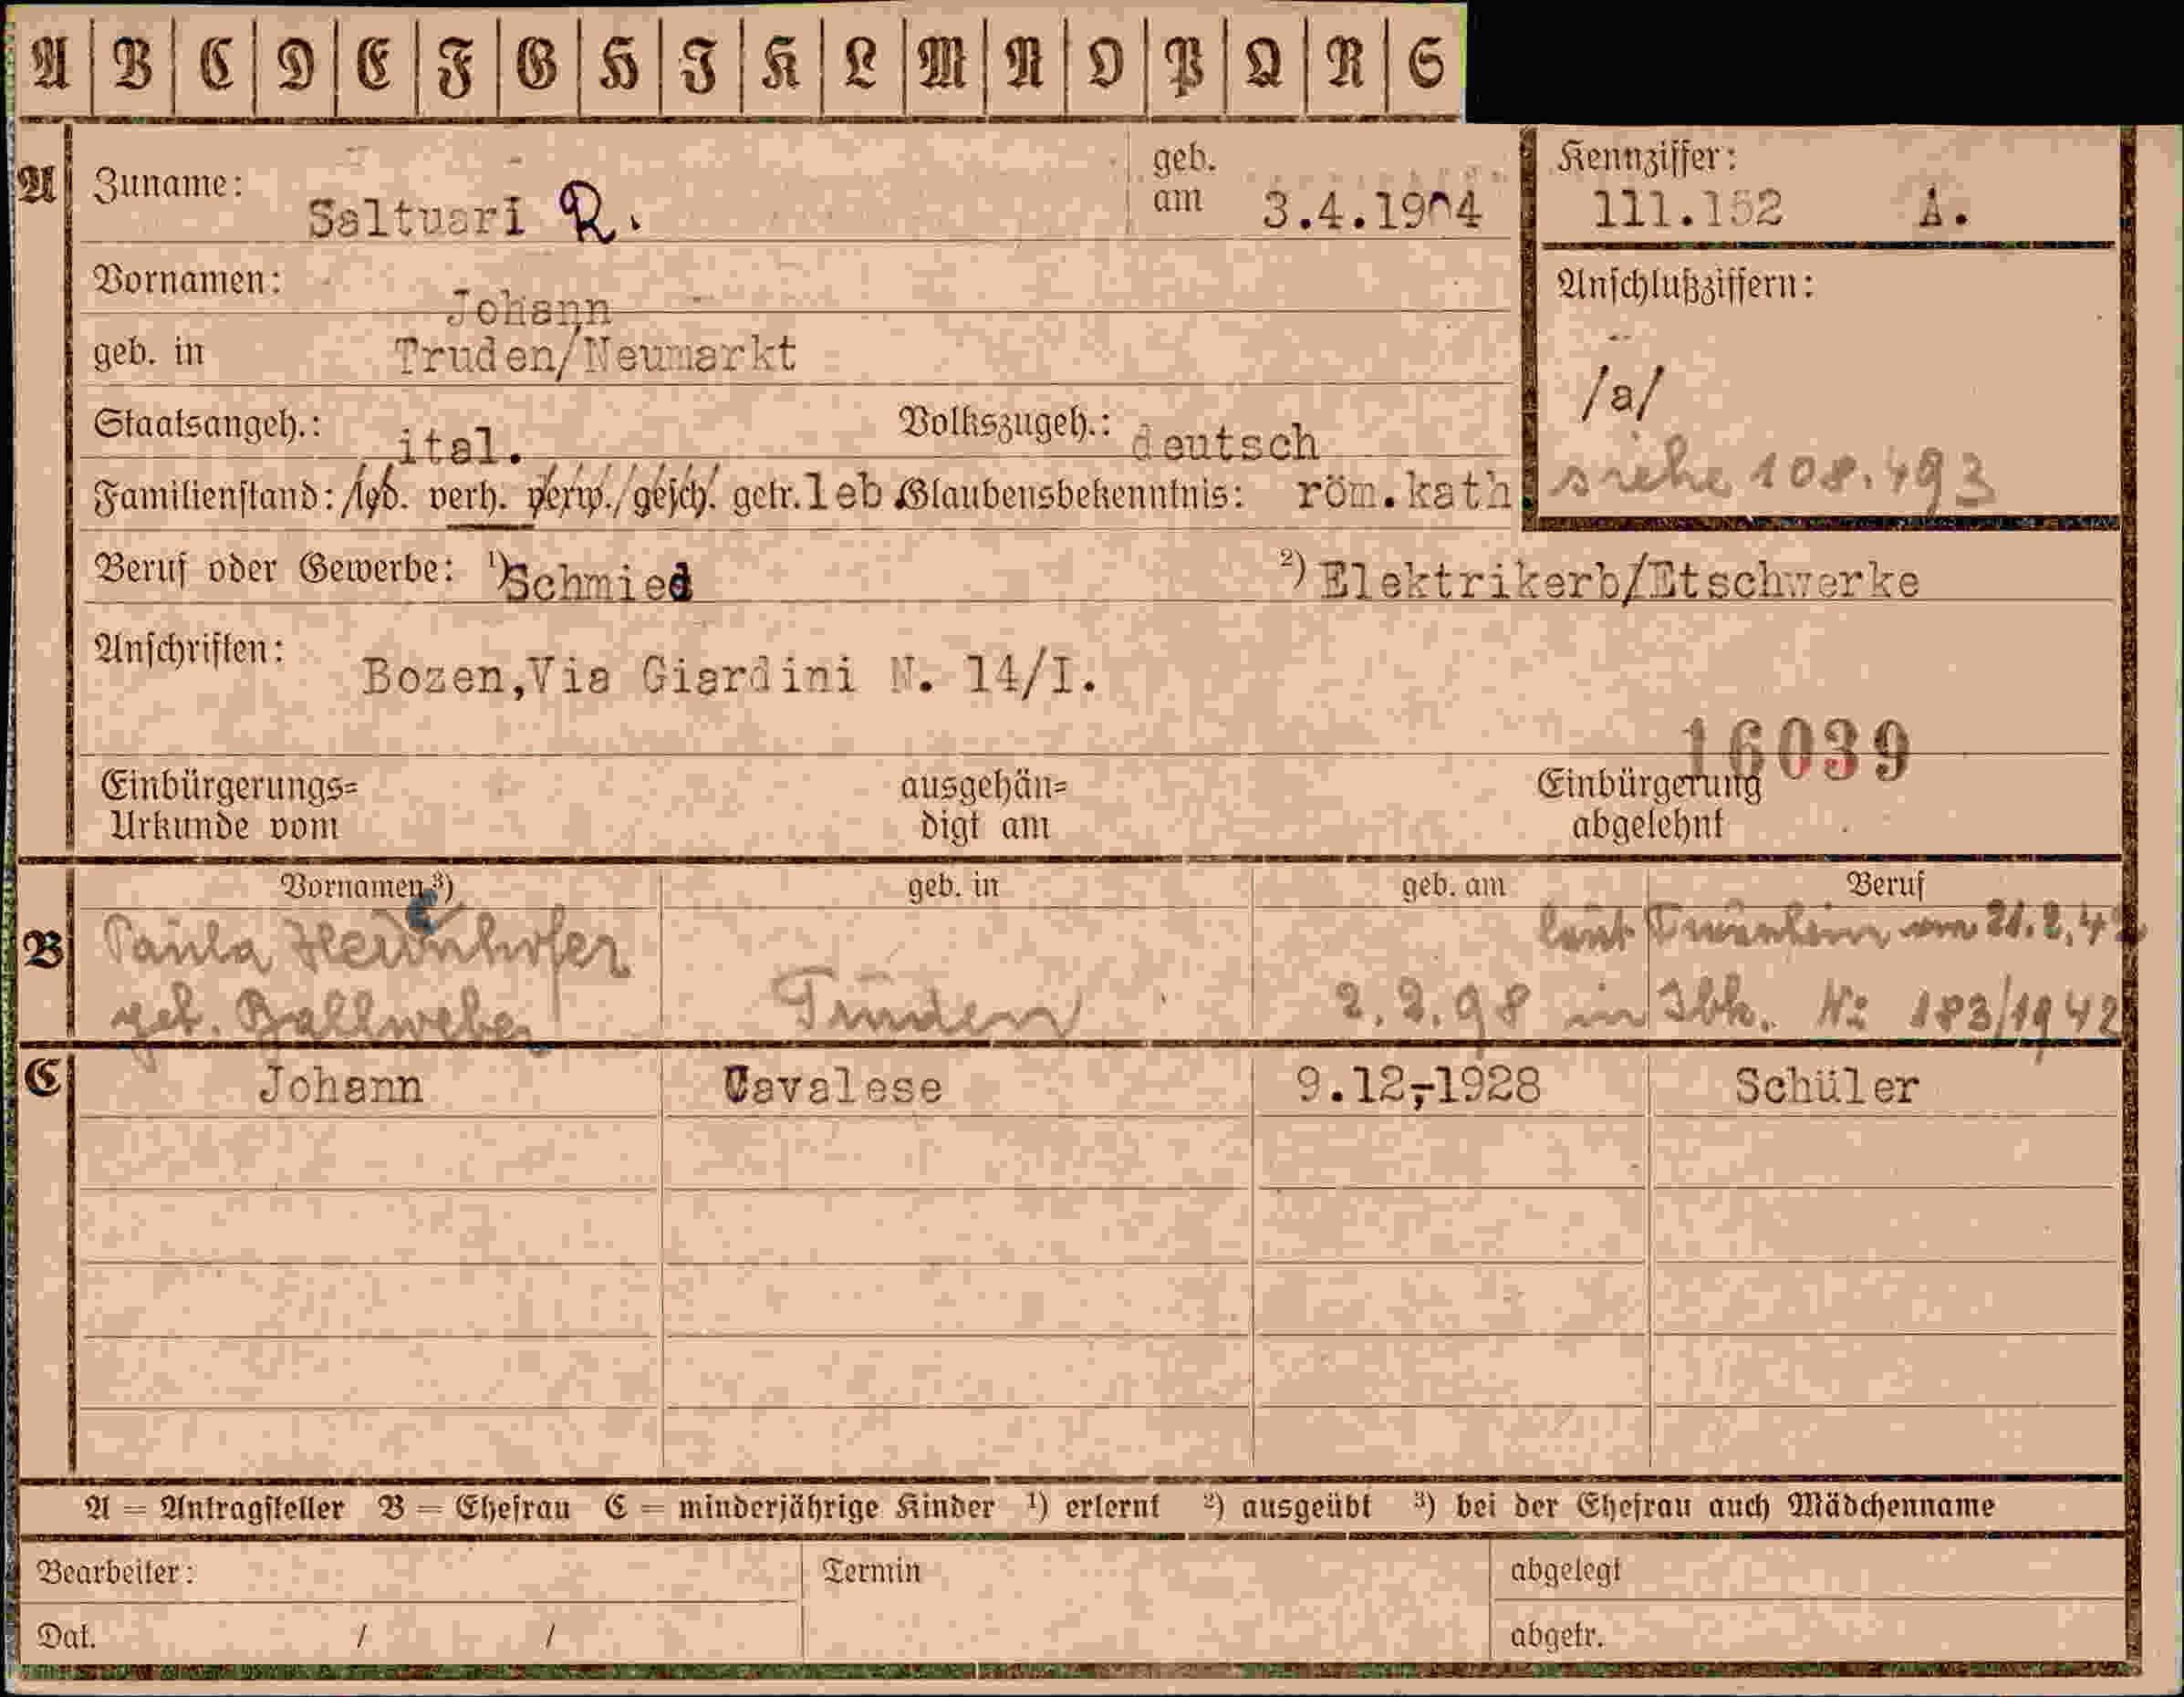 A B C D E F G H I K L M N O P Q R S
A Zuname: Saltuari R. geb. am 3.4.1904 Kennziffer: 111.152 A.
Vornamen: Johann Anschlußziffern:
geb. in Truden/Neumarkt /a/
Staatsangeh.: ital. Volkszugeh.: deutsch
Familienstand: led. verh. verw. gesch. getr. leb Glaubensbekenntnis: röm.kath. siehe 108.493
Beruf oder Gewerbe: 1) Schmied 2) Elektrikerb/Etschwerke
Anschriften: Bozen,Via Giardini N. 14/I.
16039
Einbürgerungs= ausgehän= Einbürgerung
Urkunde vom digt am abgelehnt
Vornamen 3) geb. in geb. am Beruf
B Paula laut vom 21.2.42
geb. Ballweber Truden 2.2.98 in Ibk. No 183/1942
C Johann Cavalese 9.12.-1928 Schüler
A = Antragsteller B = Ehefrau C = minderjährige Kinder 1) erlernt 2) ausgeübt 3) bei der Ehefrau auch Mädchenname
Bearbeiter: Termin abgelegt
Dat. / / abgetr.